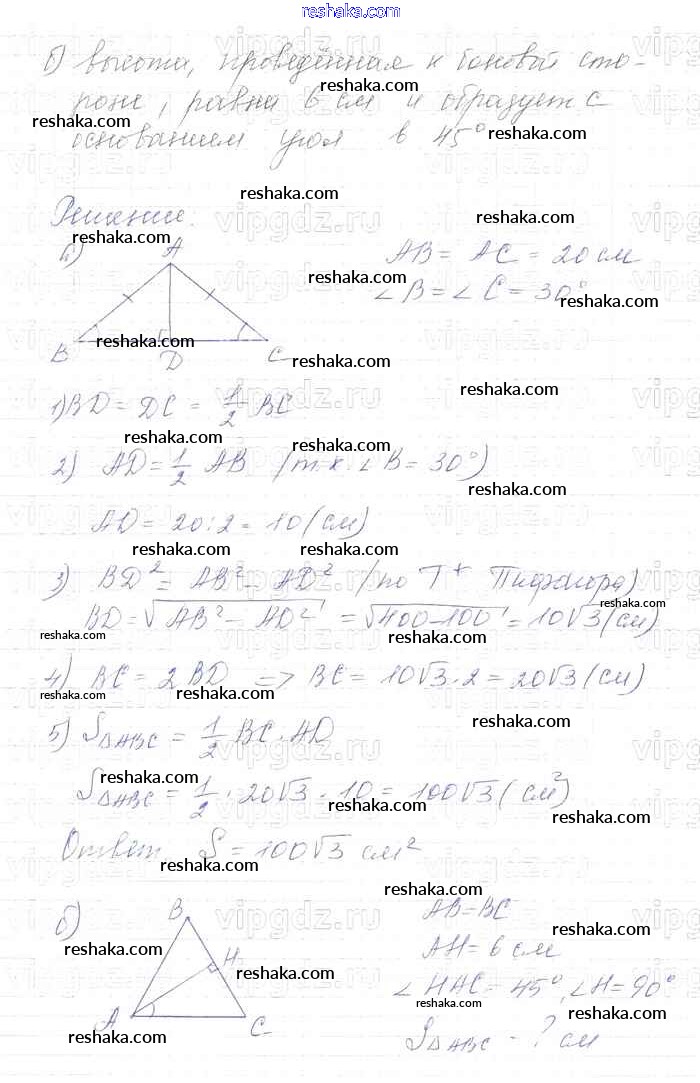 reshaka.com
б) высота, проведённая к боковой сто-
роне, равна 6 см и образует с
основанием угол в 45°
Решение.
а)
A
B
D
C
AB = AC = 20 см
∠B = ∠C = 30°
1) BD = DC = 1/2 BC
2) AD = 1/2 AB (т.к. ∠B = 30°)
AD = 20:2 = 10 (см)
3) BD² = AB² - AD² (по Т+ Пифагора)
BD = √(AB² - AD²) = √(400-100) = 10√3 (см)
4) BC = 2BD => BC = 10√3 · 2 = 20√3 (см)
5) S△ABC = 1/2 BC · AD
S△ABC = 1/2 · 20√3 · 10 = 100√3 (см²)
Ответ S = 100√3 см²
б)
B
H
A
C
AB = BC
AH = 6 см
∠HAC = 45°, ∠H = 90°
S△ABC - ? см
reshaka.com
vipgdz.ru